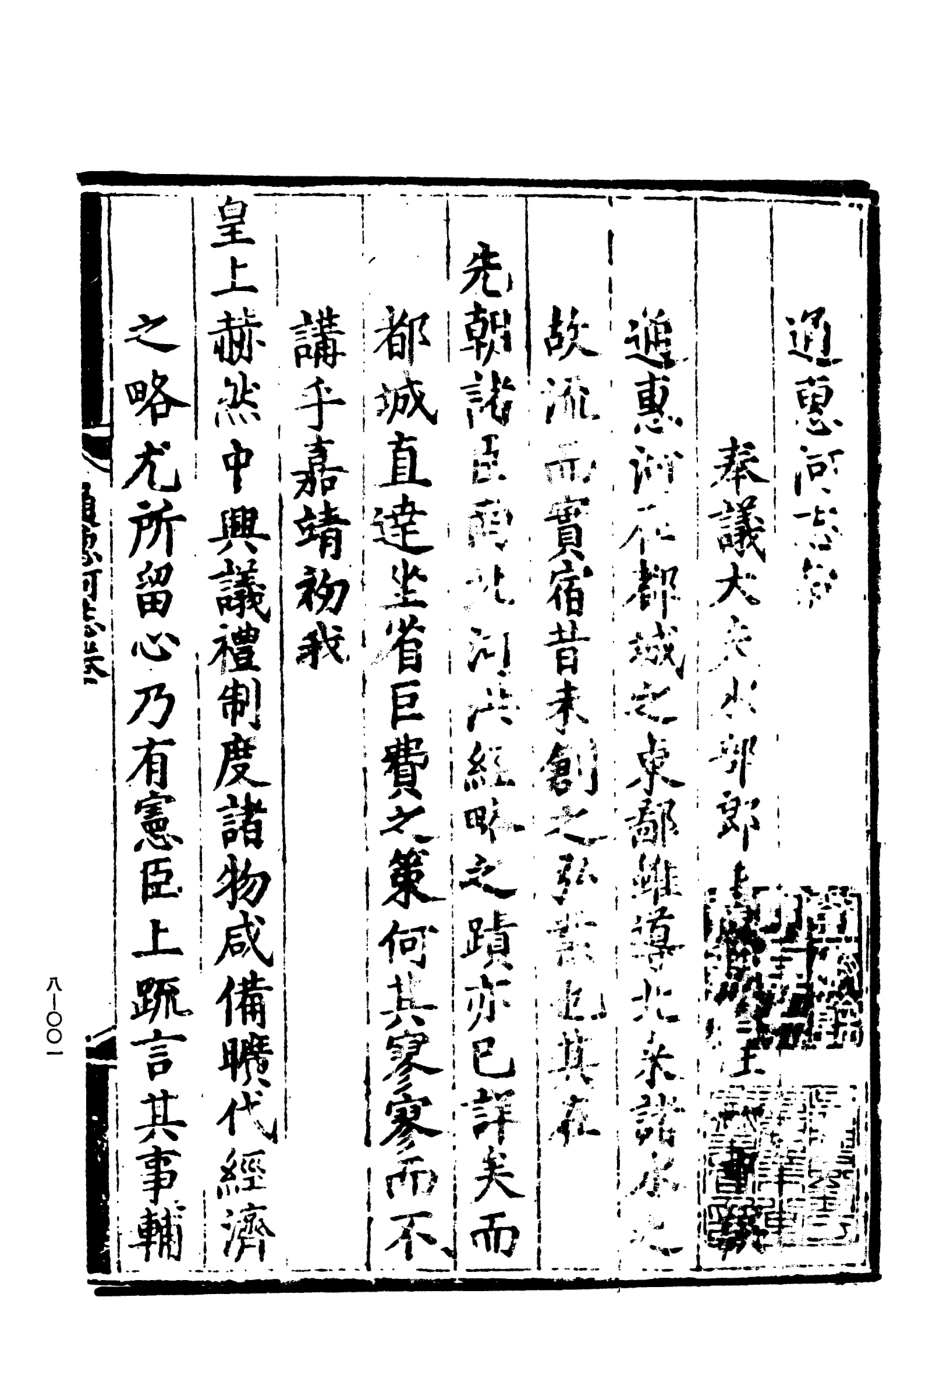 通惠河志
奉議大夫水部郎
通惠河在都城之東鄙雖導北來諸水之
故流而實宿昔未創之弘業也其在
先朝諸臣南北河洪經略之蹟亦已詳矣而
都城直達坐省巨費之策何其寥寥而不
講乎嘉靖初我
皇上赫然中興議禮制度諸物咸備曠代經濟
之略尤所留心乃有憲臣上疏言其事輔
通惠河志卷
八—〇〇一